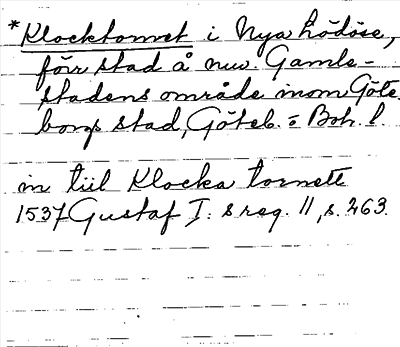 *Klocktornet i Nya Lödöse,
förr stad å nuv. Gamle-
stadens område inom Göte-
borgs stad, Göteb. o Boh. l.
in till Klocka tornett
1537 Gustaf I:s reg. 11, s. 263.